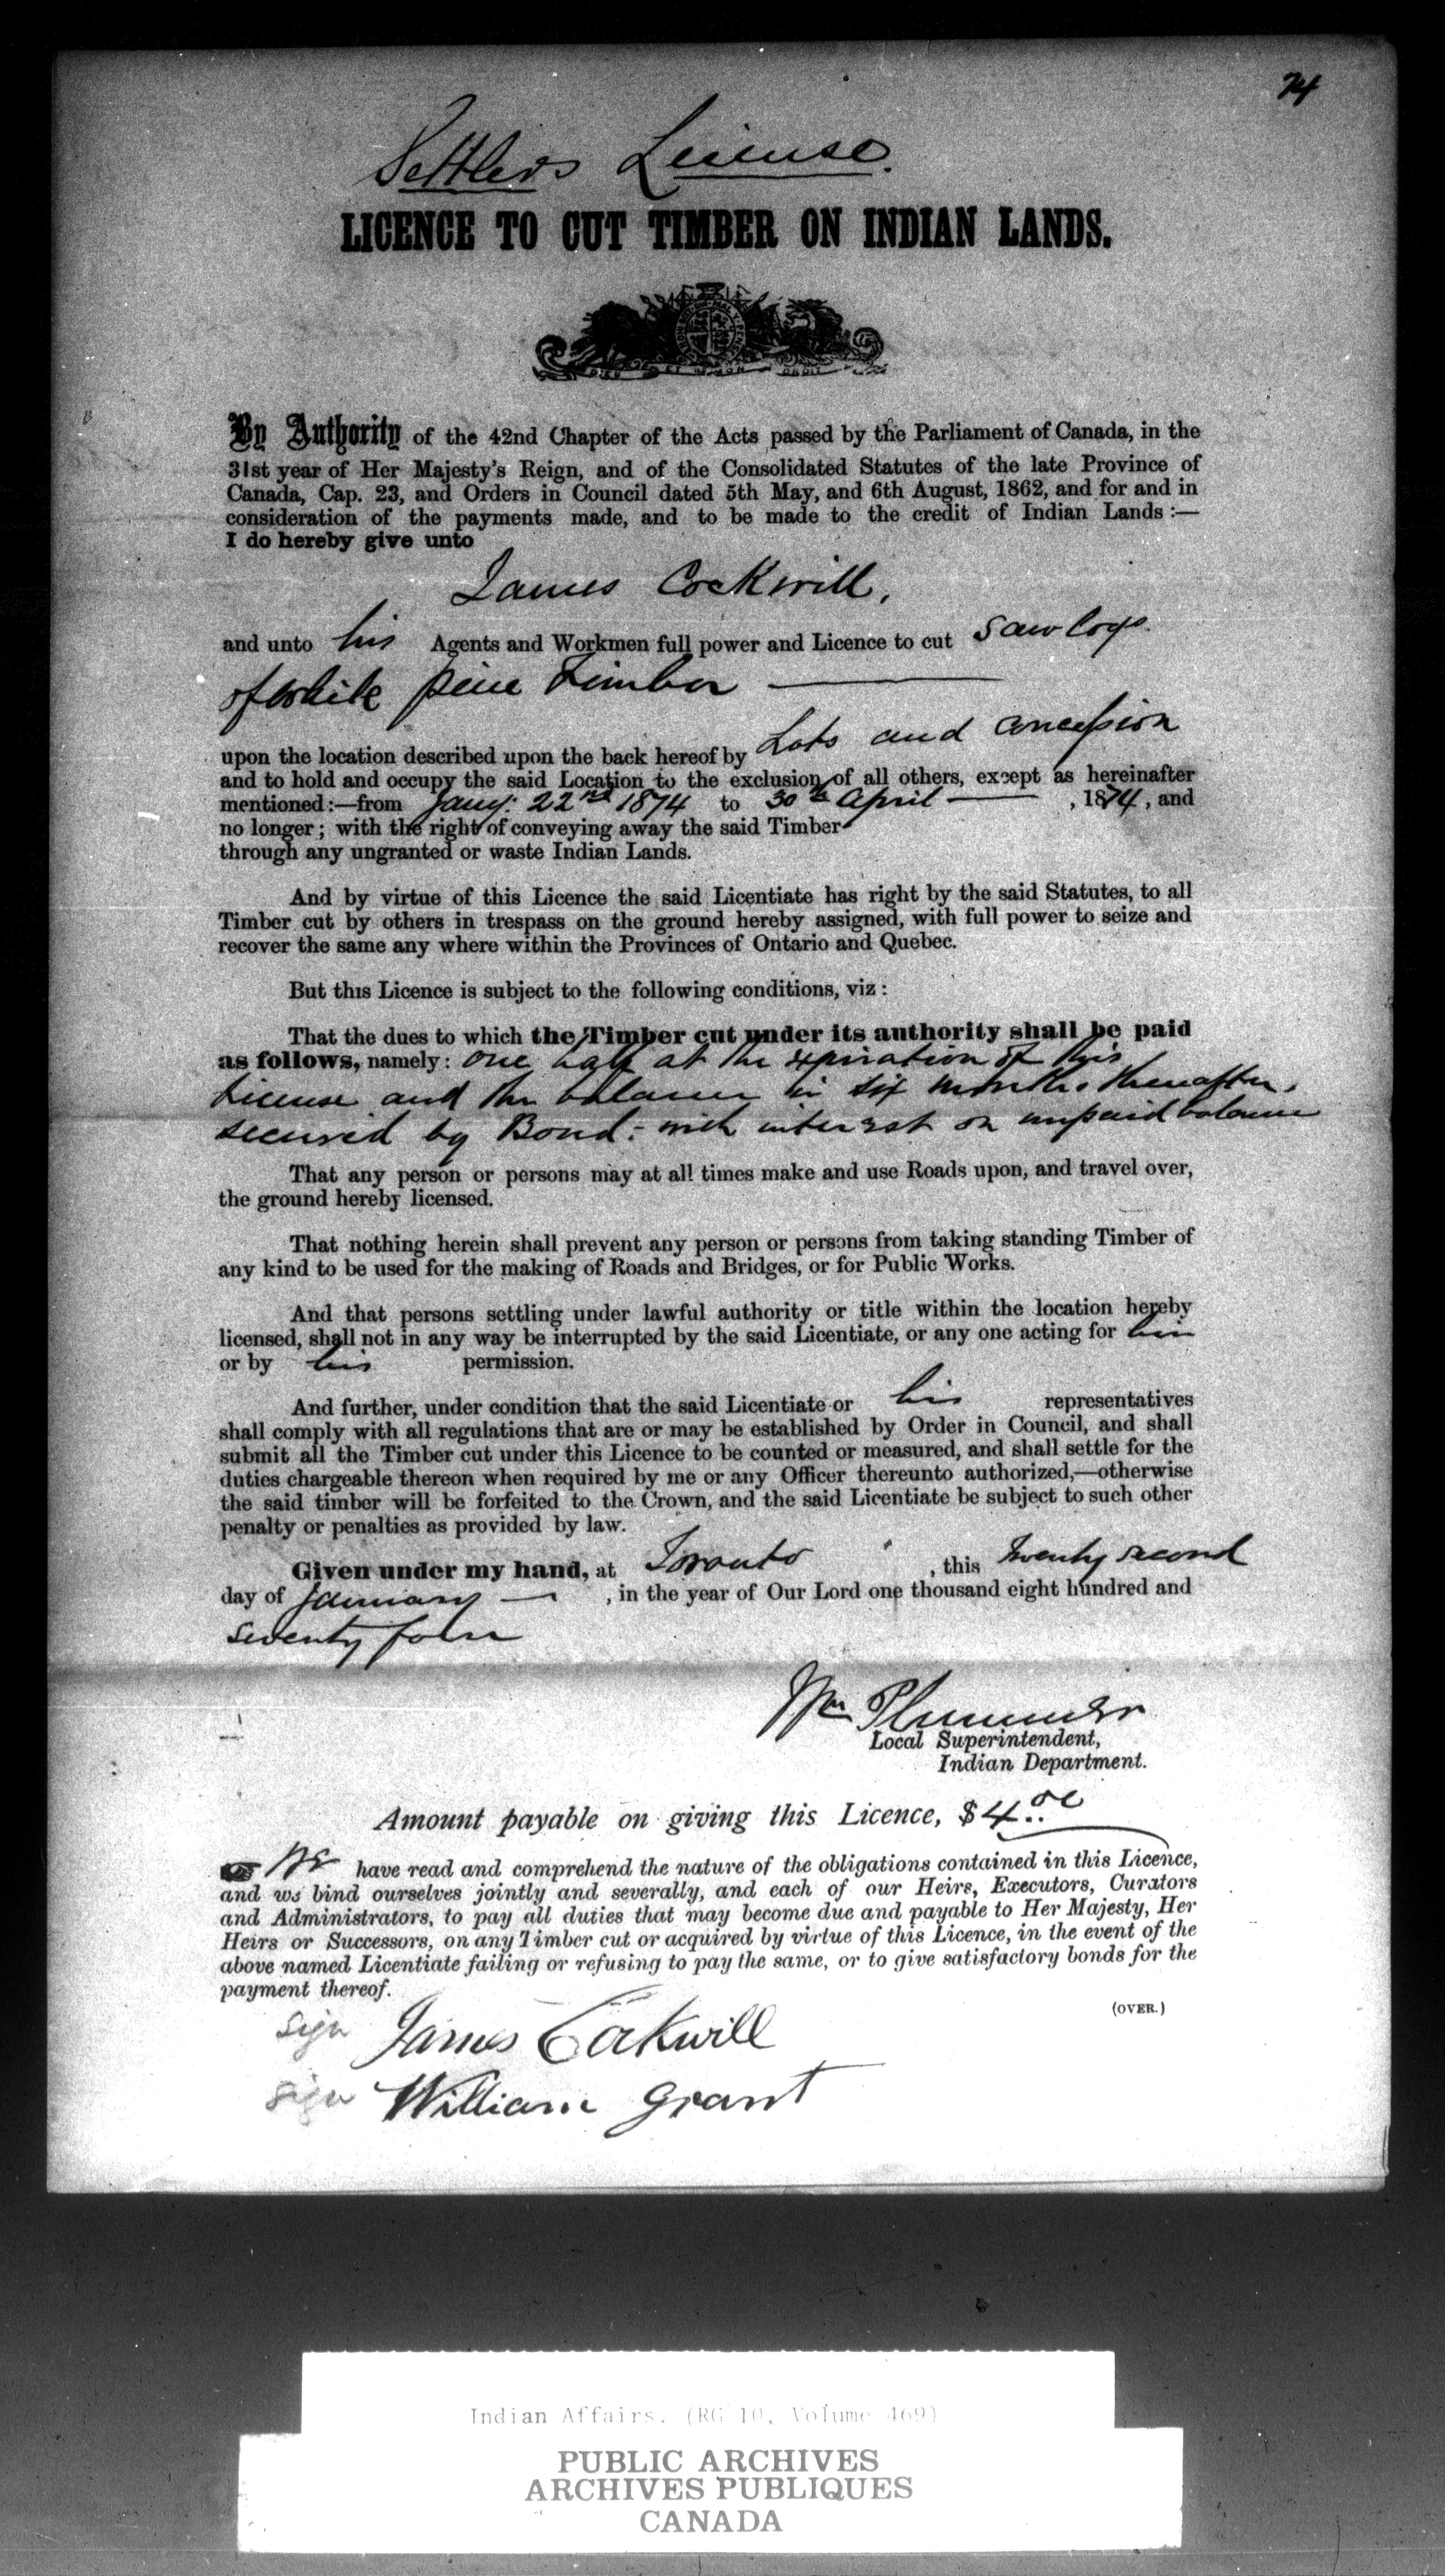 74
Settlers License.
LICENCE TO CUT TIMBER ON INDIAN LANDS.
DIEU ET MON DROIT
By Authority of the 42nd Chapter of the Acts passed by the Parliament of Canada, in the
31st year of Her Majesty's Reign, and of the Consolidated Statutes of the late Province of
Canada, Cap. 23, and Orders in Council dated 5th May, and 6th August, 1862, and for and in
consideration of the payments made, and to be made to the credit of Indian Lands :—
I do hereby give unto
James Cockwill,
and unto his Agents and Workmen full power and Licence to cut Saw logs
of white pine timber
upon the location described upon the back hereof by Lots and Concession
and to hold and occupy the said Location to the exclusion of all others, except as hereinafter
mentioned :—from Jany: 22nd 1874 to 30th April , 1874, and
no longer ; with the right of conveying away the said Timber
through any ungranted or waste Indian Lands.
And by virtue of this Licence the said Licentiate has right by the said Statutes, to all
Timber cut by others in trespass on the ground hereby assigned, with full power to seize and
recover the same any where within the Provinces of Ontario and Quebec.
But this Licence is subject to the following conditions, viz :
That the dues to which the Timber cut under its authority shall be paid
as follows, namely : one half at the expiration of this
license and the balance in six months thereafter,
secured by Bond:- with interest on unpaid balance
That any person or persons may at all times make and use Roads upon, and travel over,
the ground hereby licensed.
That nothing herein shall prevent any person or persons from taking standing Timber of
any kind to be used for the making of Roads and Bridges, or for Public Works.
And that persons settling under lawful authority or title within the location hereby
licensed, shall not in any way be interrupted by the said Licentiate, or any one acting for him
or by his permission.
And further, under condition that the said Licentiate or his representatives
shall comply with all regulations that are or may be established by Order in Council, and shall
submit all the Timber cut under this Licence to be counted or measured, and shall settle for the
duties chargeable thereon when required by me or any Officer thereunto authorized,—otherwise
the said timber will be forfeited to the Crown, and the said Licentiate be subject to such other
penalty or penalties as provided by law.
Given under my hand, at Toronto , this twenty second
day of January , in the year of Our Lord one thousand eight hundred and
seventy four
Wm Plummer
Local Superintendent,
Indian Department.
Amount payable on giving this Licence, $4.00
We have read and comprehend the nature of the obligations contained in this Licence,
and we bind ourselves jointly and severally, and each of our Heirs, Executors, Curators
and Administrators, to pay all duties that may become due and payable to Her Majesty, Her
Heirs or Successors, on any Timber cut or acquired by virtue of this Licence, in the event of the
above named Licentiate failing or refusing to pay the same, or to give satisfactory bonds for the
payment thereof.
(OVER.)
Sign James Cockwill
Sign William Grant
Indian Affairs. (RG 10, Volume 469)
PUBLIC ARCHIVES
ARCHIVES PUBLIQUES
CANADA